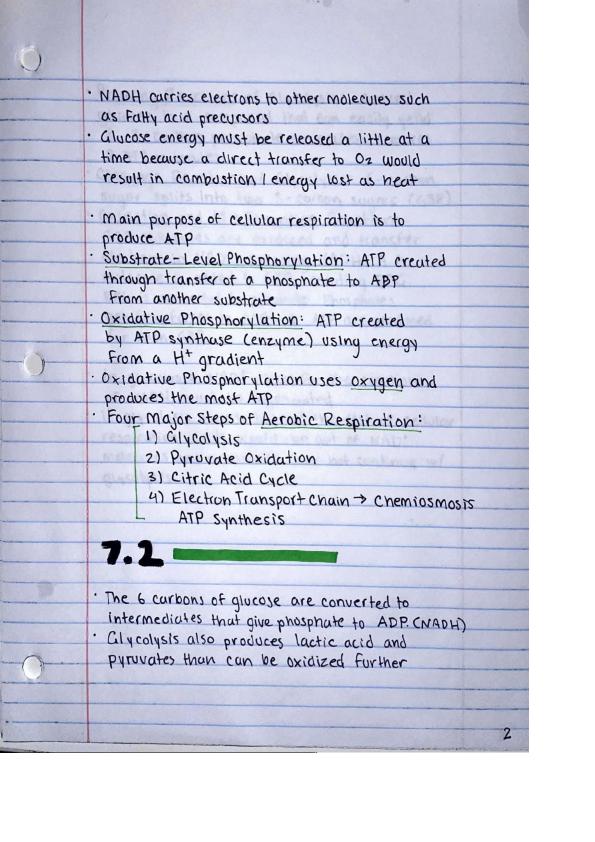 · NADH carries electrons to other molecules such
as Fatty acid precursors
· Glucose energy must be released a little at a
time because a direct transfer to O2 would
result in combustion / energy lost as heat
· Main purpose of cellular respiration is to
produce ATP
· Substrate-Level Phosphorylation: ATP created
through transfer of a phosphate to ADP
From another substrate
· Oxidative Phosphorylation: ATP created
by ATP synthase (enzyme) using energy
From a H+ gradient
· Oxidative Phosphorylation uses oxygen and
produces the most ATP
· Four Major Steps of Aerobic Respiration:
1) Glycolysis
2) Pyruvate Oxidation
3) Citric Acid Cycle
4) Electron Transport Chain → Chemiosmosis
ATP Synthesis
7.2
· The 6 carbons of glucose are converted to
intermediates that give phosphate to ADP. (NADH)
· Glycolysis also produces lactic acid and
pyruvates than can be oxidized further
2